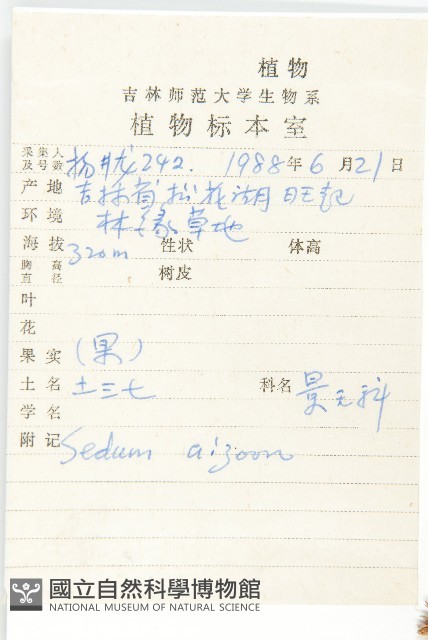 植物
吉林师范大学生物系
植物标本室
采集人及号数 杨 242. 1988年6月21日
产地 吉林省松花湖旺起
环境 林缘草地
海拔 320m 性状 体高
胸高直径 树皮
叶
花
果实 (果)
土名 土三七 科名 景天科
学名
附记 Sedum aizoon
國立自然科學博物館
NATIONAL MUSEUM OF NATURAL SCIENCE